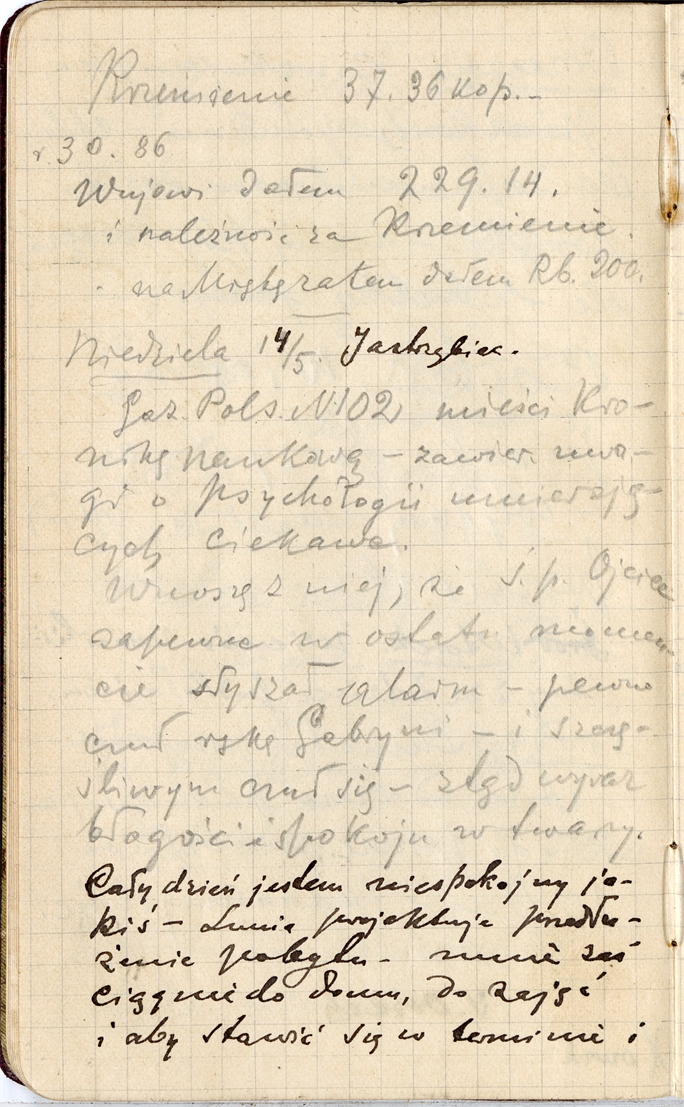 Krzemienie 37.36 kop.–
r. 30. 86
Wujowi dałem 229.14.
i należność za Krzemienie.
na Mszę ratem dałem Rb. 200.
Niedziela 14/5. Jastrzębiec.
Gaz. Pols. N102 mieści Kro–
nikę naukową – zawier. uwa–
gi o psychologii umierają–
cych ciekawe.
Wnoszę z niej, że Ś. p. Ojciec
zapewne w ostatn. momen–
cie słyszał alarm – pewno
czuł rękę Gabryni – i szczę–
śliwym czuł się – ztąd wyraz
błogości i spokoju w twarzy.
Cały dzień jestem niespokojny ja–
kiś – Lunia projektuje przedłu–
żenie pobytu – mnie zaś
ciągnie do domu, do zajęć
i aby stawić się w terminie i